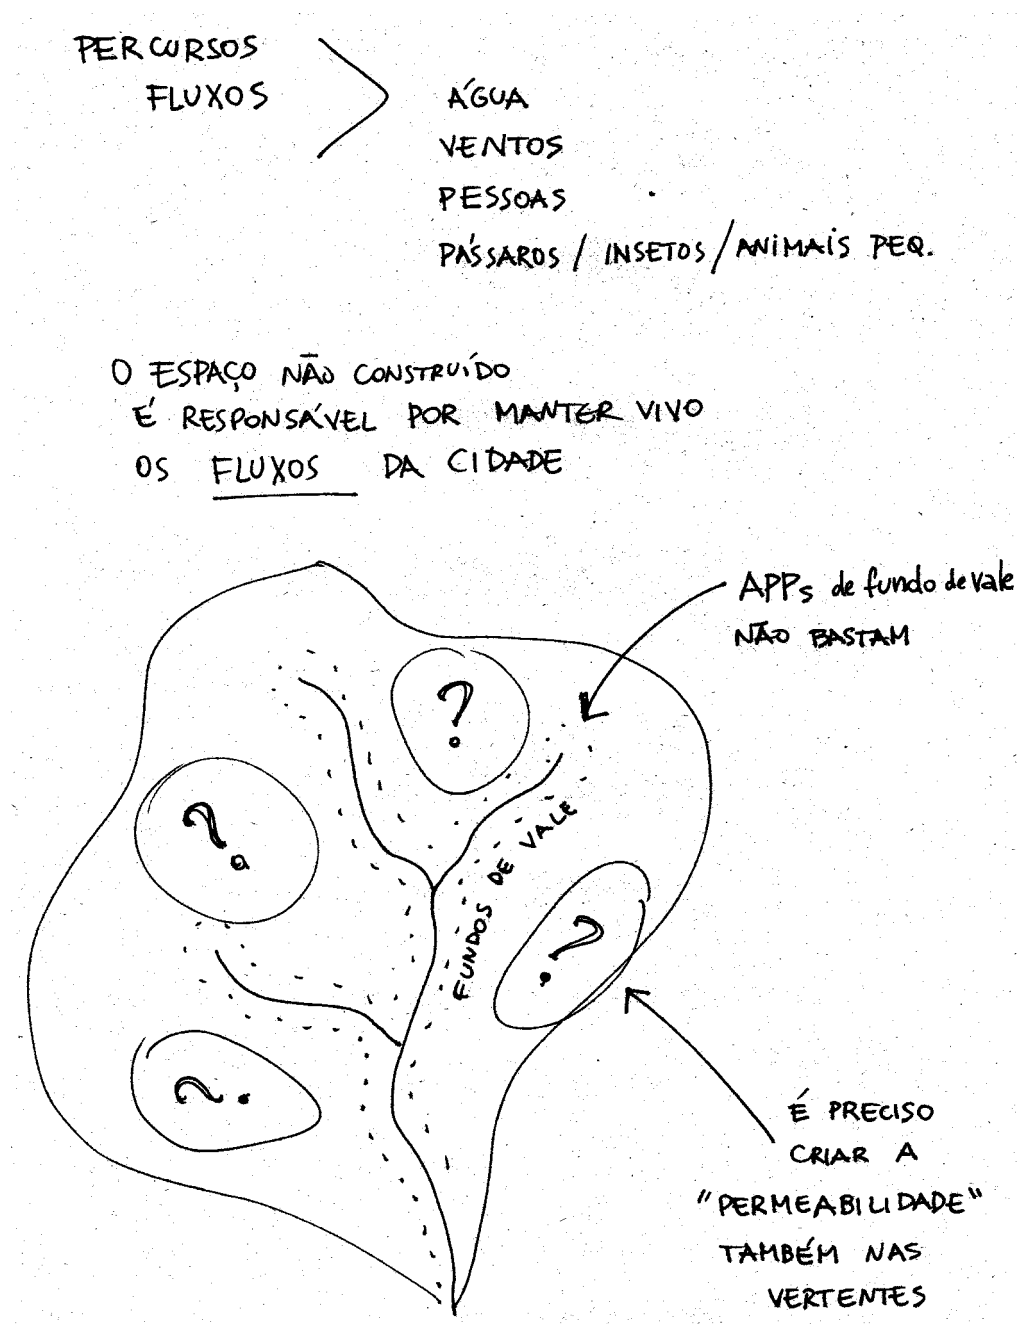 PERCURSOS
FLUXOS
ÁGUA
VENTOS
PESSOAS
PÁSSAROS / INSETOS / ANIMAIS PEQ.
O ESPAÇO NÃO CONSTRUÍDO
É RESPONSÁVEL POR MANTER VIVO
OS FLUXOS DA CIDADE
APPs de fundo de vale
NÃO BASTAM
?
?
FUNDOS DE VALE
?
?
É PRECISO
CRIAR A
"PERMEABILIDADE"
TAMBÉM NAS
VERTENTES